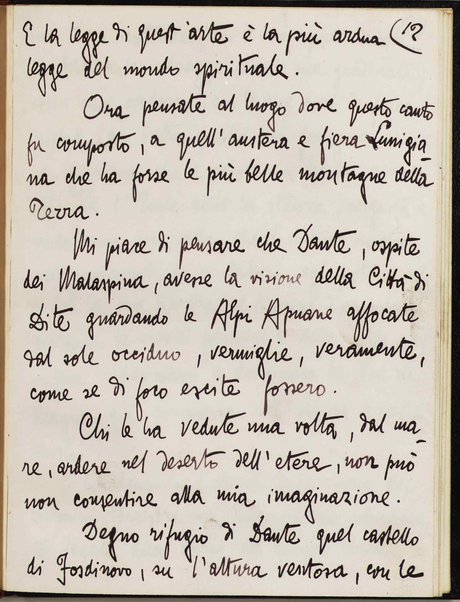 E la legge di quest'arte è la più ardua (12
legge del mondo spirituale.
Ora pensate al luogo dove questo canto
fu composto, a quell'austera e fiera Lunigia
na che ha forse le più belle montagne della
Terra.
Mi piace di pensare che Dante, ospite
dei Malaspina, avesse la visione della Città di
Dite guardando le Alpi Apuane affocate
dal sole occiduo, vermiglie, veramente,
come se di foco escite fossero.
Chi le ha vedute una volta, dal ma-
re, ardere nel deserto dell'etere, non può
non consentire alla mia imaginazione.
Degno rifugio di Dante quel castello
di Fosdinovo, su l'altura ventosa, con le